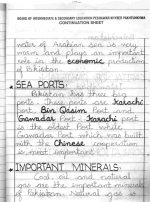 BOARD OF INTERMEDIATE & SECONDARY EDUCATION PESHAWAR KHYBER PAKHTUNKHWA
CONTINUATION SHEET
water of Arabian sea is very
warm and plays an important
role in the economic production
of Pakistan.
SEA PORTS:
Pakistan has three big
ports. These ports are Karachi
port, Bin Qasim Port
Gawadar Port. Karachi port
is the oldest Port while
Gawadar Port which was built
with the Chinese cooperation
is most important.
IMPORTANT MINERALS:
Coal, oil and natural
gas are the important minerals
of Pakistan. Natural gas is